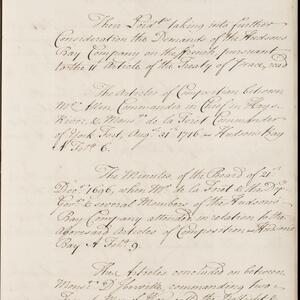 Their Lordps taking into further
Consideration the Demands of the Hudsons
Bay Company on the ffrench, pursuant
to the 11th Article of the Treaty of Peace, read
The Articles of Composition between
Mr. Allen Commander in Chief in Hays
River, & Monsr. de la Forest Commander
of York Fort, Augt. 31st 1716 — Hudsons Bay
A Folo. 6.
The Minutes of the Board of 21st
Decr. 1696, when Mr. de la Forêt & the Dy.
Govr. & several Members of the Hudsons
Bay Company attended in relation to the
aforesaid Articles of Composition — Hudsons
Bay A Folo. 9
The Articles concluded on between
Monsr. D'Iberville, commanding two